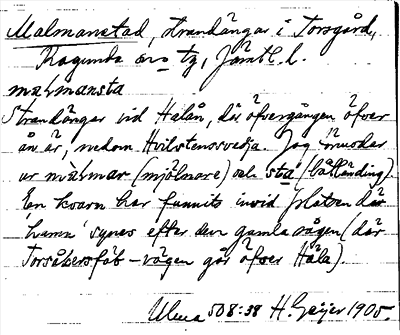 Malmanstad, strandängar i Torsgård,
Ragunda sn o tg, Jämtl. l.
malmansta
Strandängar vid Halån, där öfvergången öfver
ån är, nedom Hvilstensvedja. Jag önskar
ur malmar (mjölnare) och sta (båtländing)
En kvarn har funnits invid platsen där
hamn synes efter den gamla vägen (där
Torsåkersfäb-vägen går öfver Håla).
Ulma 508:38 H. Geijer 1905.